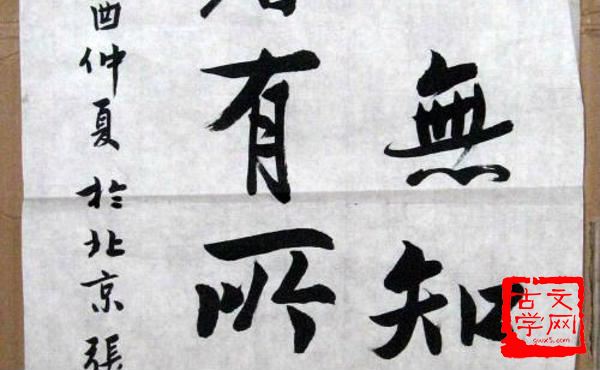 無知
有所
酉仲夏於北京張
古文
学网
gwx5.com